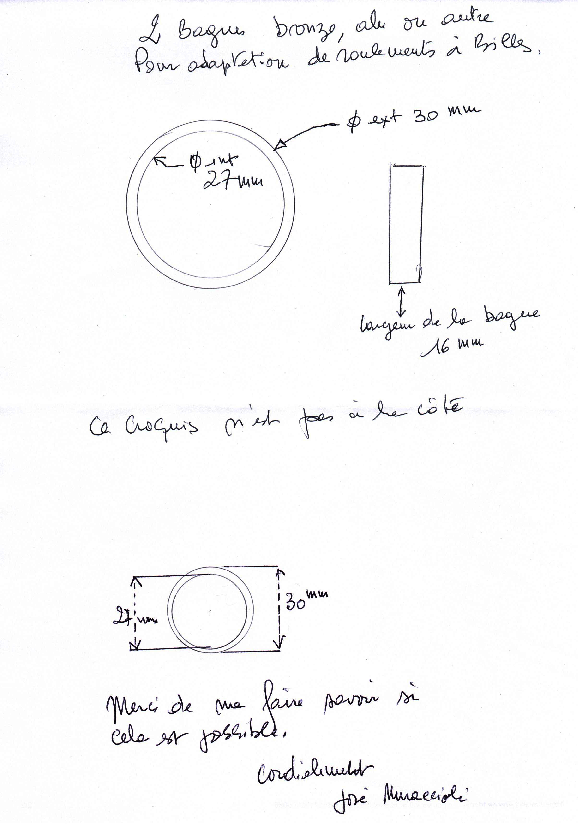 2 Bagues bronze, alu ou autre
Pour adaptation de roulements à Billes.
ϕ ext 30 mm
ϕ int
27 mm
largeur de la bague
16 mm
Ce croquis n'est pas à la côte
27 mm
30 mm
Merci de me faire savoir si
cela est possible.
Cordialement
José Muraccioli